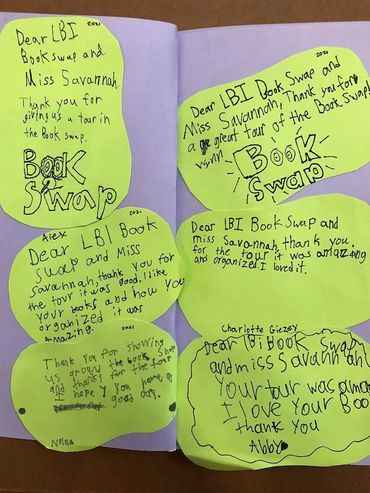 2021
Dear LBI
Bookswap and
Miss Savannah.
Thank you for
giving us a tour in
the Book swap.
Book
Swap
2021
Alex
Dear LBI Book
swap and Miss
savannah, thank you for
the tour it was good. I like
your books and how you
organized it was
amazing.
2021
Thank you for showing
us arond the book shop
and thanks for the tour
I hope you have a
good day.
Nolan
2021
Dear LBI Book Swap and
Miss Savannah, Thank you for
a great tour of the Book Swap!
Book
Swap
Dear LBI Book Swap and
miss Savannah, thank you
for the tour it was amazaing
and organized I loved it.
Charlotte Giezey
Dear LBI Book Swap
and miss Savannah
Your tour was
I love Your Boo
thank you
Abby